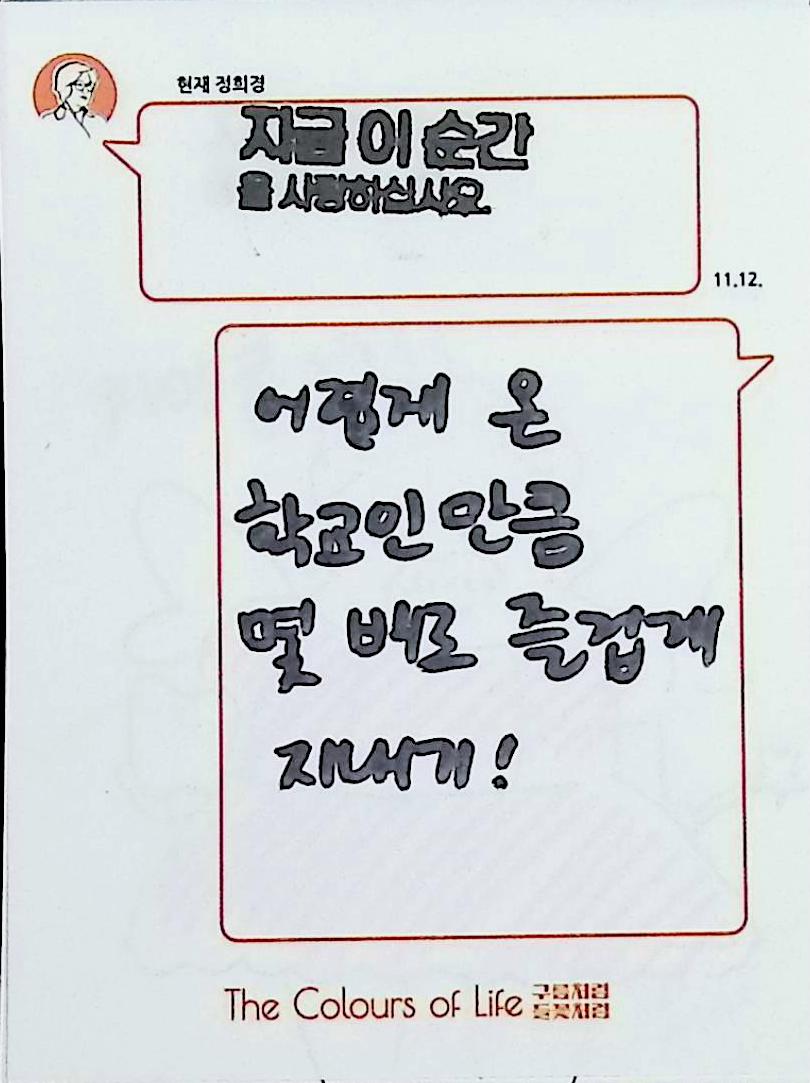 현재 정희경
지금 이 순간
을 사랑하십시오.
11.12.
어렵게 온
학교인 만큼
몇 배로 즐겁게
지내기!
The Colours of Life 구름처럼
들꽃처럼